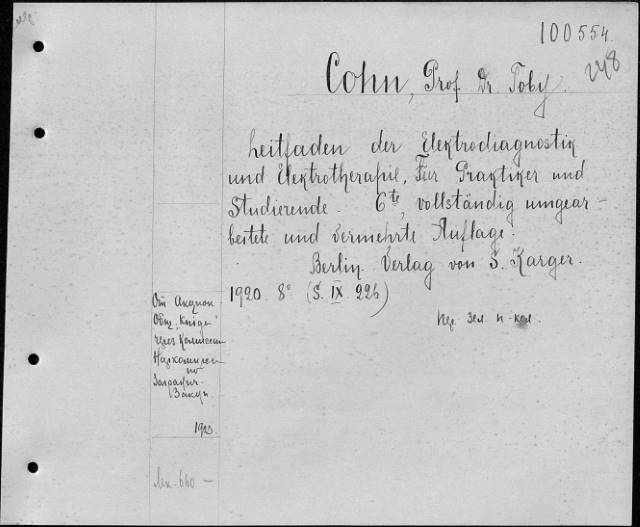 100554.
248
Cohn, Prof. Dr. Toby.
Leitfaden der Elektrodiagnostik
und Elektrotherapie. Für Praktiker und
Studierende. 6te, vollständig umgear-
beitete und vermehrte Auflage.
Berlin. Verlag von S. Karger.
1920. 8° (S. IX. 226)
Пер. зел. п-кол.
От Акцион
Общ. „Книга"
через Комиссию
Наркомпроса
по
Заграпич.
Закуп.
1923
Мк. 660 -